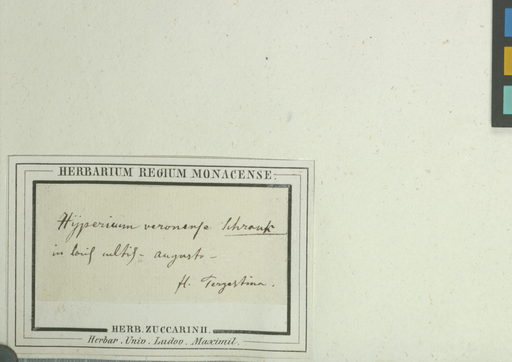 HERBARIUM REGIUM MONACENSE.
Hypericum veronense Schrank
in locis cultis – augusto –
fl. Tergestina.
HERB. ZUCCARINII.
Herbar. Univ. Ludov. Maximil.